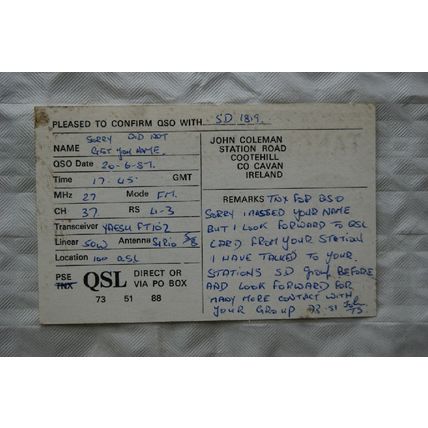 PLEASED TO CONFIRM QSO WITH.. SD 1819.
SORRY DID NOT
NAME GET YOU NAME.
QSO Date 20-6-87.
Time 17-45. GMT
MHz 27 Mode FM.
CH 37 RS 4-3
Transceiver YAESU FT102
Linear 50W Antenna SIRIO 5/8
Location 100 QSL
PSE
TNX
QSL DIRECT OR
VIA PO BOX
73 51 88
JOHN COLEMAN
STATION ROAD
COOTEHILL
CO CAVAN
IRELAND
REMARKS TNX FOR QSO
SORRY I MISSED YOUR NAME
BUT I LOOK FORWARD TO QSL
CARD FROM YOUR STATION
I HAVE TALKED TO YOUR
STATIONS S.D group BEFORE
AND LOOK FORWARD FOR
MANY MORE CONTACT WITH
YOUR GROUP 73-51 John
73